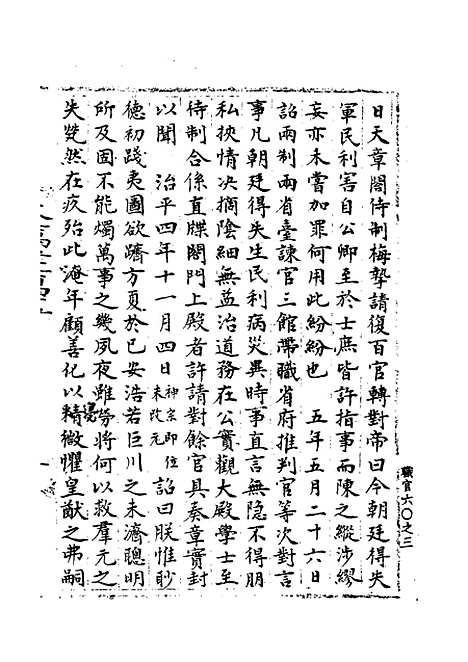 日天章閣侍制梅摯請復百官轉對帝曰今朝廷得失
軍民利害自公卿至於士庶皆許指事而陳之縱涉繆
妄亦未嘗加罪何用此紛紛也　五年五月二十六日
詔兩制兩省臺諫官三館帶職省府推判官等次對言
事凡朝廷得失生民利病災異時事直言無隱不得朋
私挾情决摘陰細無益治道務在公實觀大殿學士至
待制合係直牒閤門上殿者許請對餘官具奏章實封
以聞　治平四年十一月四日神宗即位未改元詔曰朕惟眇
德初踐夷圖欲躋方夏於已安浩若巨川之未濟聰明
所及固不能燭萬事之幾夙夜雖勞將何以救羣元之
失煢然在疚殆此淹年顧善化以精微懼皇猷之弗嗣
職官六〇之三